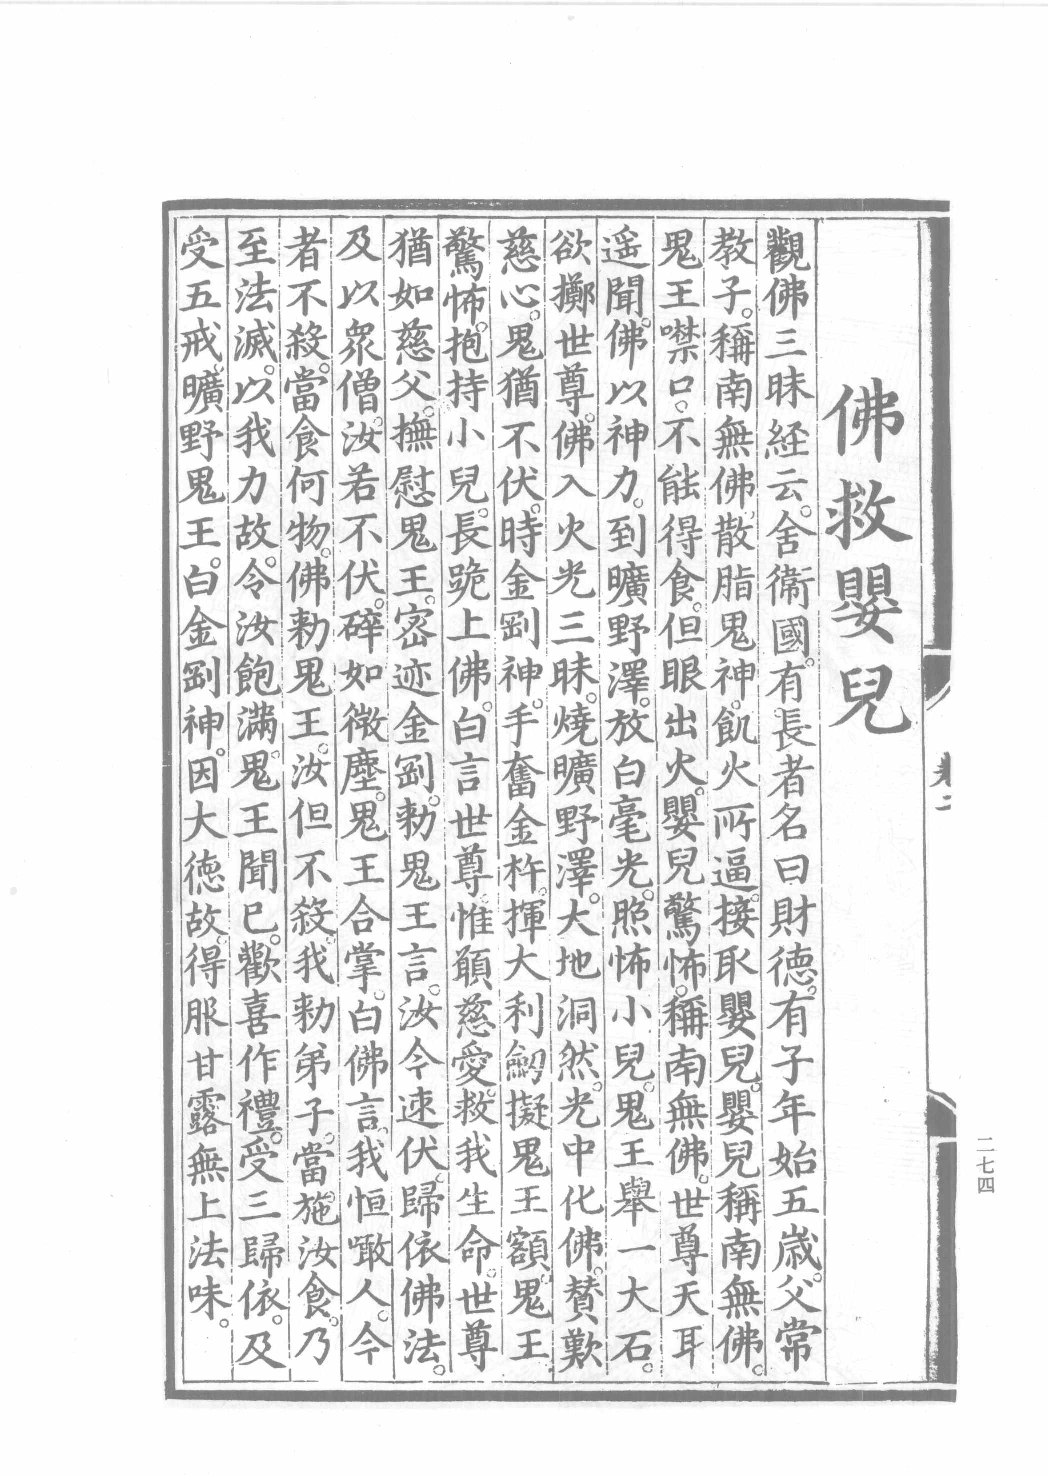 佛救嬰兒
觀佛三昧経云。舍衛國。有長者名曰財德。有子年始五歲。父常
教子。稱南無佛。散脂鬼神。飢火所逼。接取嬰兒。嬰兒稱南無佛。
鬼王噤口。不能得食。但眼出火。嬰兒驚怖。稱南無佛。世尊天耳
遥聞。佛以神力。到曠野澤。放白毫光。照怖小兒。鬼王舉一大石。
欲擲世尊。佛入火光三昧。燒曠野澤。大地洞然。光中化佛。賛歎
慈心。鬼猶不伏。時金剛神。手奮金杵。揮大利劒。擬鬼王額。鬼王
驚怖。抱持小兒。長跪上佛。白言世尊。惟願慈愛。救我生命。世尊
猶如慈父。撫慰鬼王。密迹金剛。勑鬼王言。汝今速伏。歸依佛法。
及以衆僧。汝若不伏。碎如微塵。鬼王合掌。白佛言。我恒噉人。今
者不殺。當食何物。佛勑鬼王。汝但不殺。我勑弟子。當施汝食。乃
至法滅。以我力故。令汝飽滿。鬼王聞已。歡喜作禮。受三歸依。及
受五戒。曠野鬼王。白金剛神。因大德故。得服甘露無上法味。
卷二
二七四